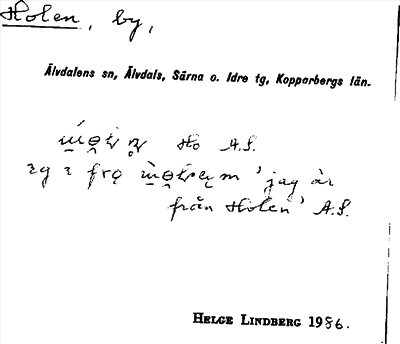 Holen, by,
Älvdalens sn, Älvdals, Särna o. Idre tg, Kopparbergs län.
Ho A.S.
'jag är
från Holen' A.S.
HELGE LINDBERG 1986.